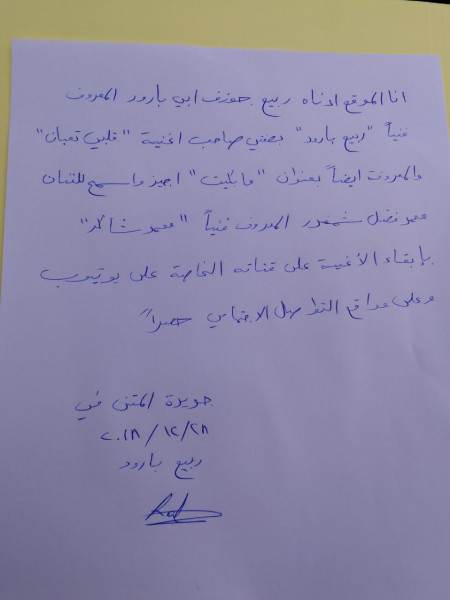 انا الموقع ادناه ربيع جوزف ابي بارود المعروف
فنياً "ربيع بارود" بصفتي صاحب اغنية "قلبي تعبان"
والمعروفة ايضاً بعنوان "ما بكيت" اجيز واسمح للفنان
محمد فضل شمندور المعروف فنياً "محمد شاكر"
بإبقاء الأغنية على قناته الخاصة على يوتيوب
وعلى مواقع التواصل الاجتماعي حصراً
جديدة المتن في
٢٠١٨/١٢/٢٨
ربيع بارود